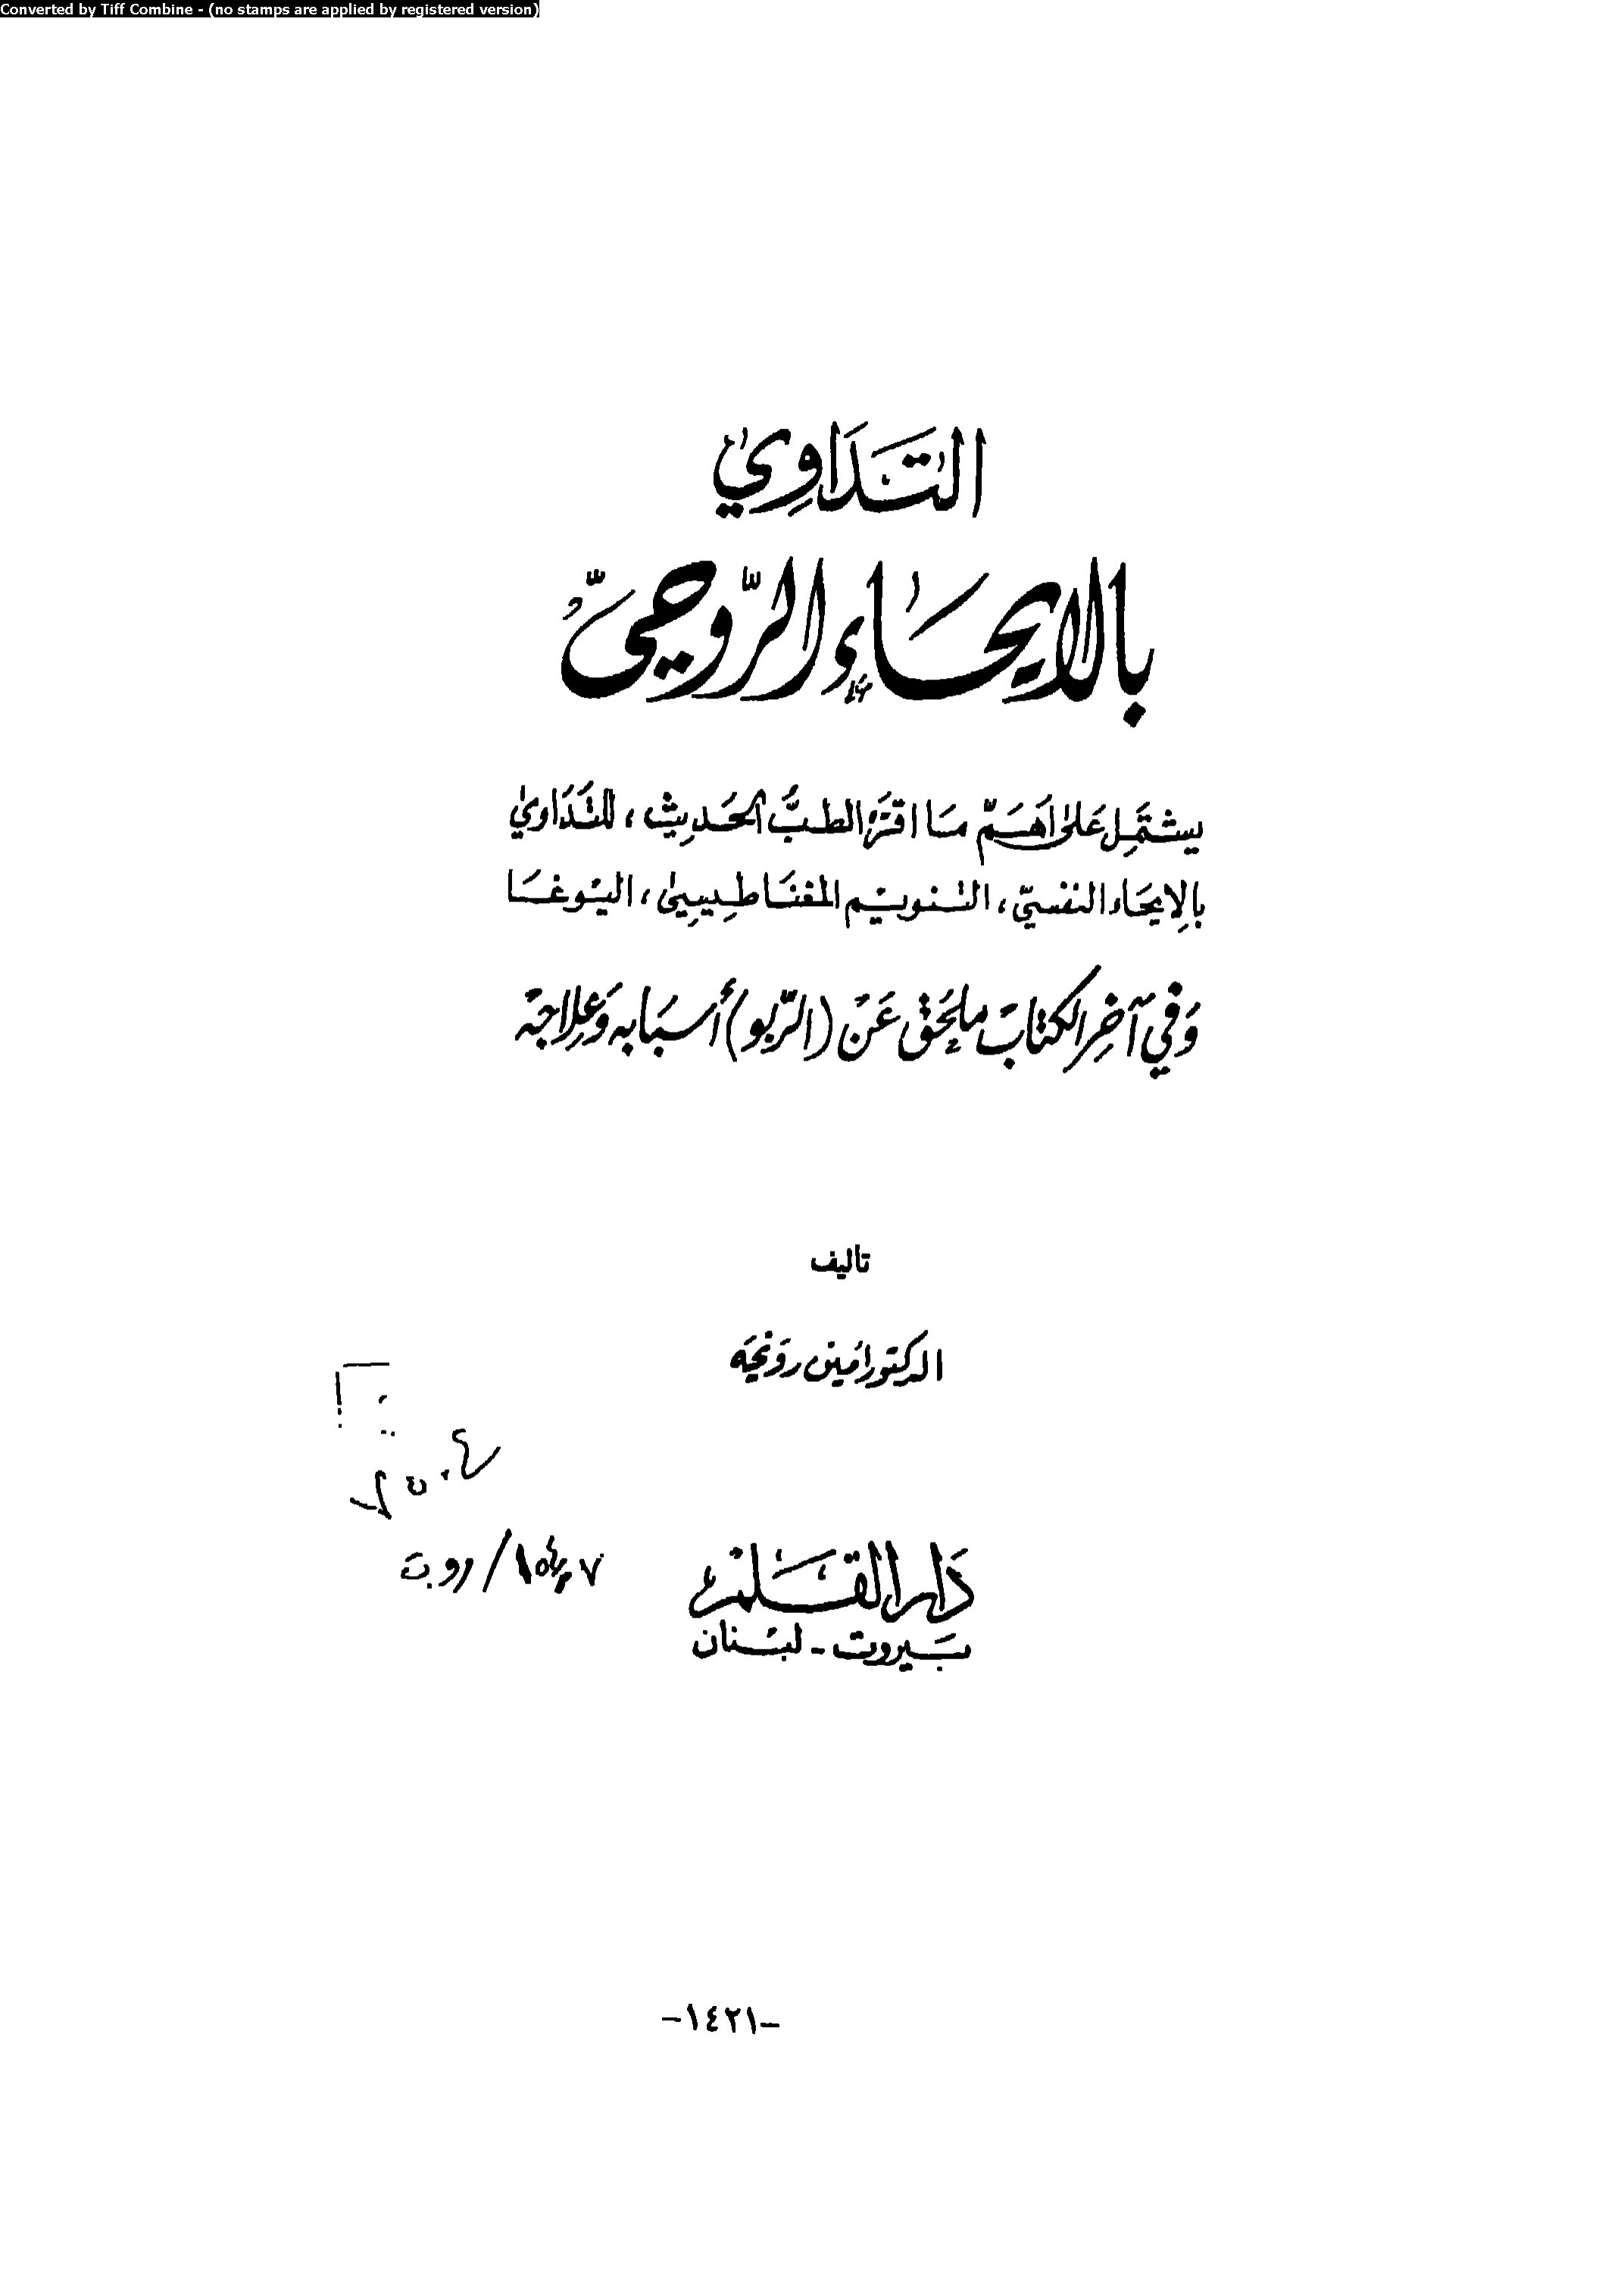 Converted by Tiff Combine - (no stamps are applied by registered version)
التَدَاوِي
بالايحَاء الرّوحيّ
يشتمِل عَلى اهَمّ مَا اقرَّه الطبُّ الحَديث، للتَدَاوي
بالِايحَاء النفسيّ، التنويم المغنَاطِيسِي، اليُوغَا
وَفي آخِر الكتابَ ملحَق عَنْ (الرّبو) أسبَابه وَعِلاجَهْ
تاليف
الدكتور امَين روَيحَه
دَار القَلم
بَيروت - لبْنان
-١٤٢١-